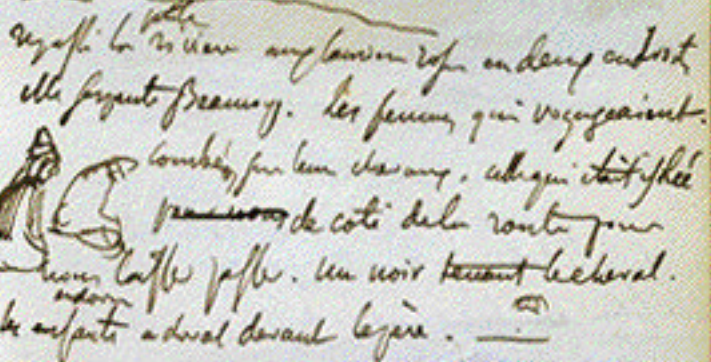 petite
rivière en deux endroits
elle serpente beaucoup. les femmes qui voyageaient.
courbées sur leurs chevaux. celle qui était
de coté de la route pour
nous laisser passer. un noir tenant le cheval.
les enfants a cheval devant le père.